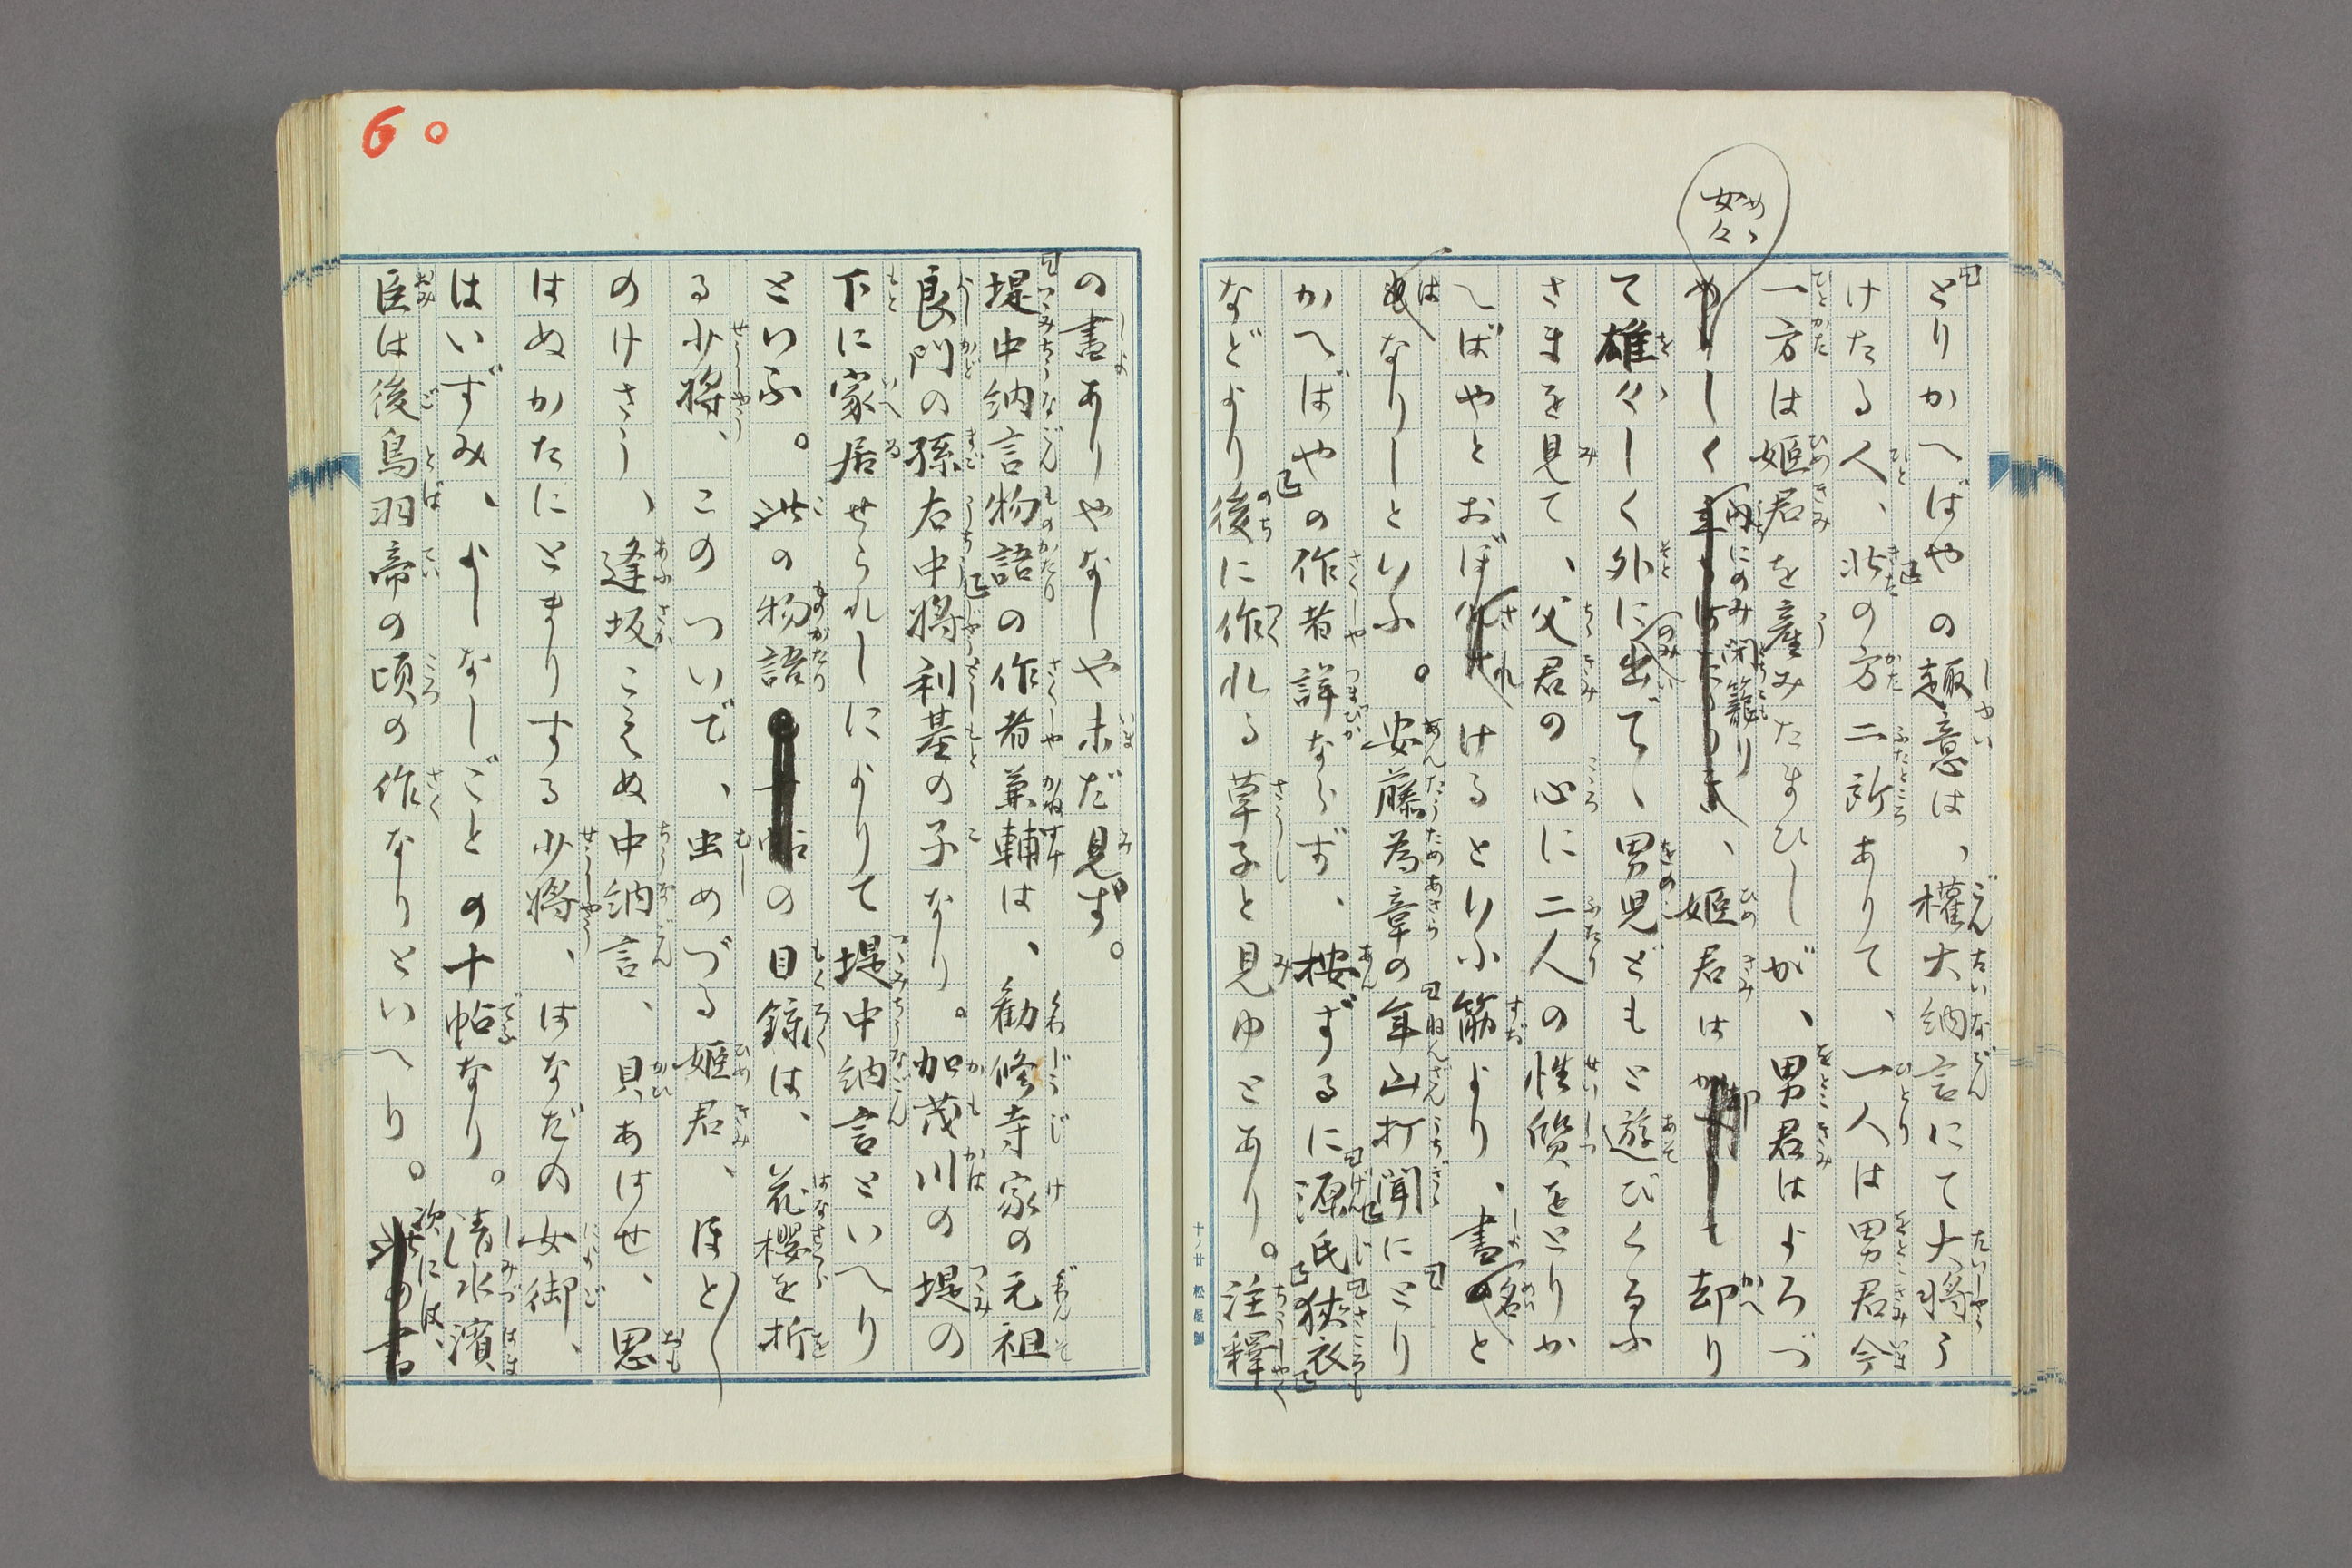 女々
とりかへばやの趣意は、權大納言にて大將う
けたる人、北の方二所ありて、一人は男君今
一方は姫君を産みたまひしが、男君はよろづ
しく内にのみ閉籠り、姫君は却て却り
て雄々しく外にのみ出でゝ男児どもと遊びくるふ
さまを見て、父君の心に二人の性質をとりか
へばやとおぼされけるといふ筋より、書名と
はなりしといふ。安藤為章の年山打聞にとり
かへばやの作者詳ならず、按ずるに源氏狹衣
などより後に作れる草子と見ゆとあり。注釋
十ノ廿 松屋製
60
の書ありやなしや未だ見ず。
堤中納言物語の作者兼輔は、勧修寺家の元祖
良門の孫右中將利基の子なり。加茂川の堤の
下に家居せられしによりて堤中納言といへり
といふ。此の物語の目錄は、花櫻を折
る少將、このついで、虫めづる姫君、ほとし
のけさう、逢坂こえぬ中納言、貝あはせ、思
はぬかたにとまりする少將、はなだの女御、
はいずみ、よしなしごとの十帖なり。清水濱
臣は後鳥羽帝の頃の作なりといへり。次には、